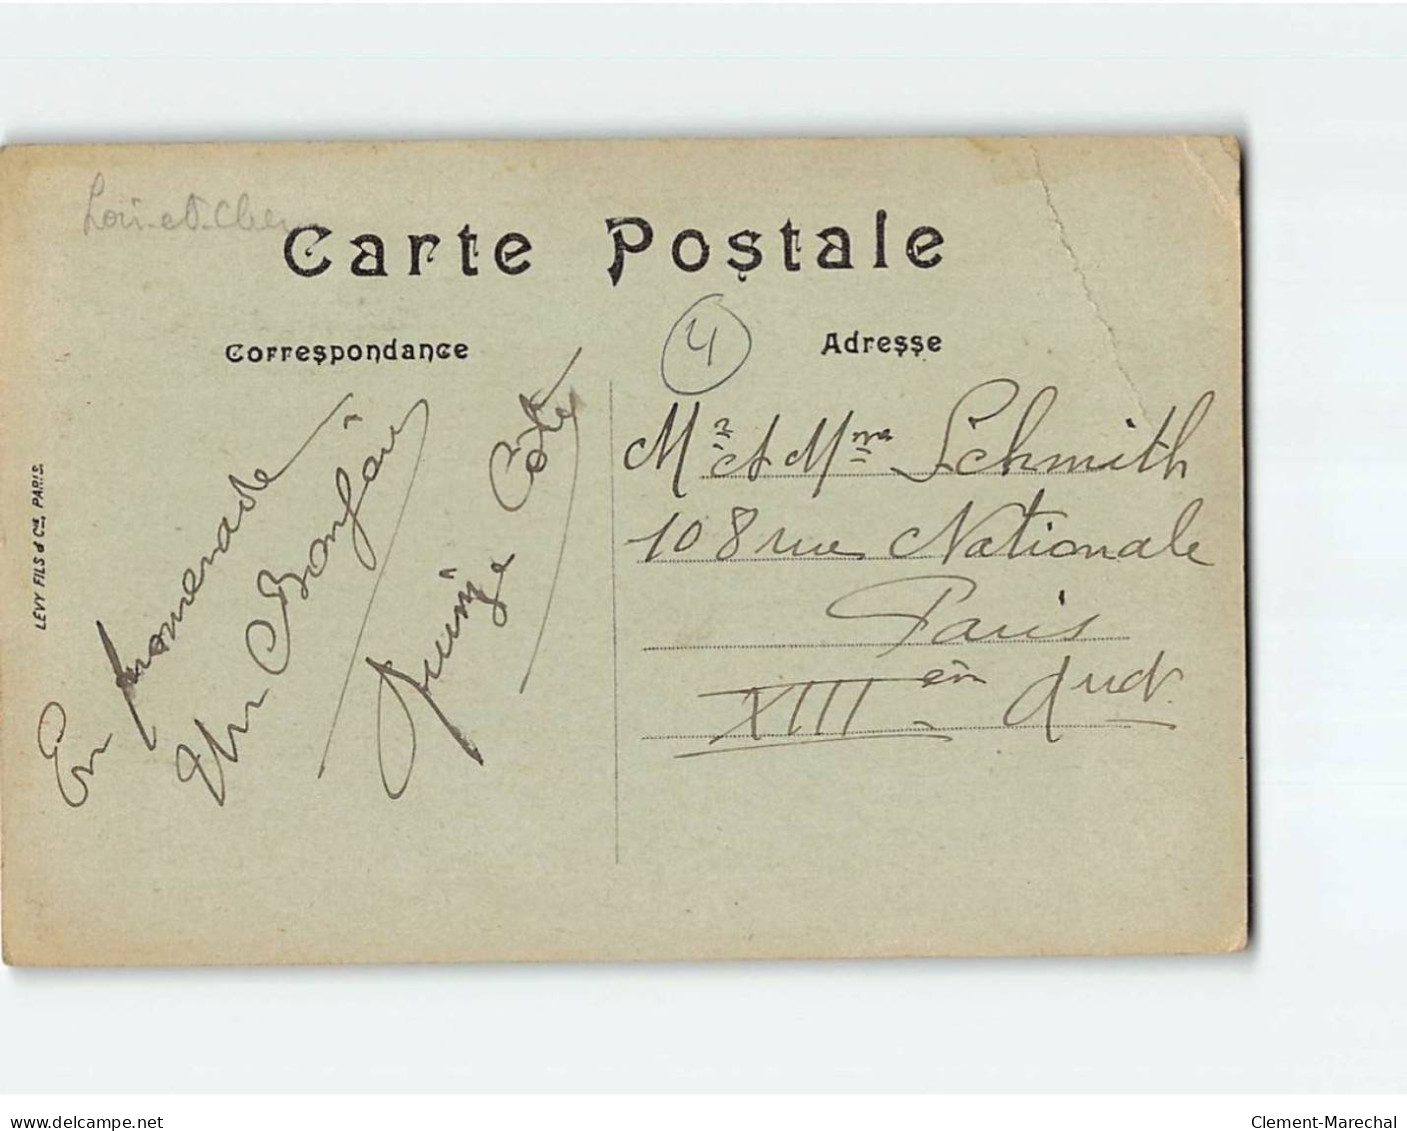 Loir-et-Cher
Carte Postale
Correspondance
Adresse
4
En promenade
Un Bonjour
Quinze Côté
Mr et Mme Schmith
108 rue Nationale
Paris
XIII en
LEVY FILS & Cie, PARIS.
www.delcampe.net
Clement-Marechal